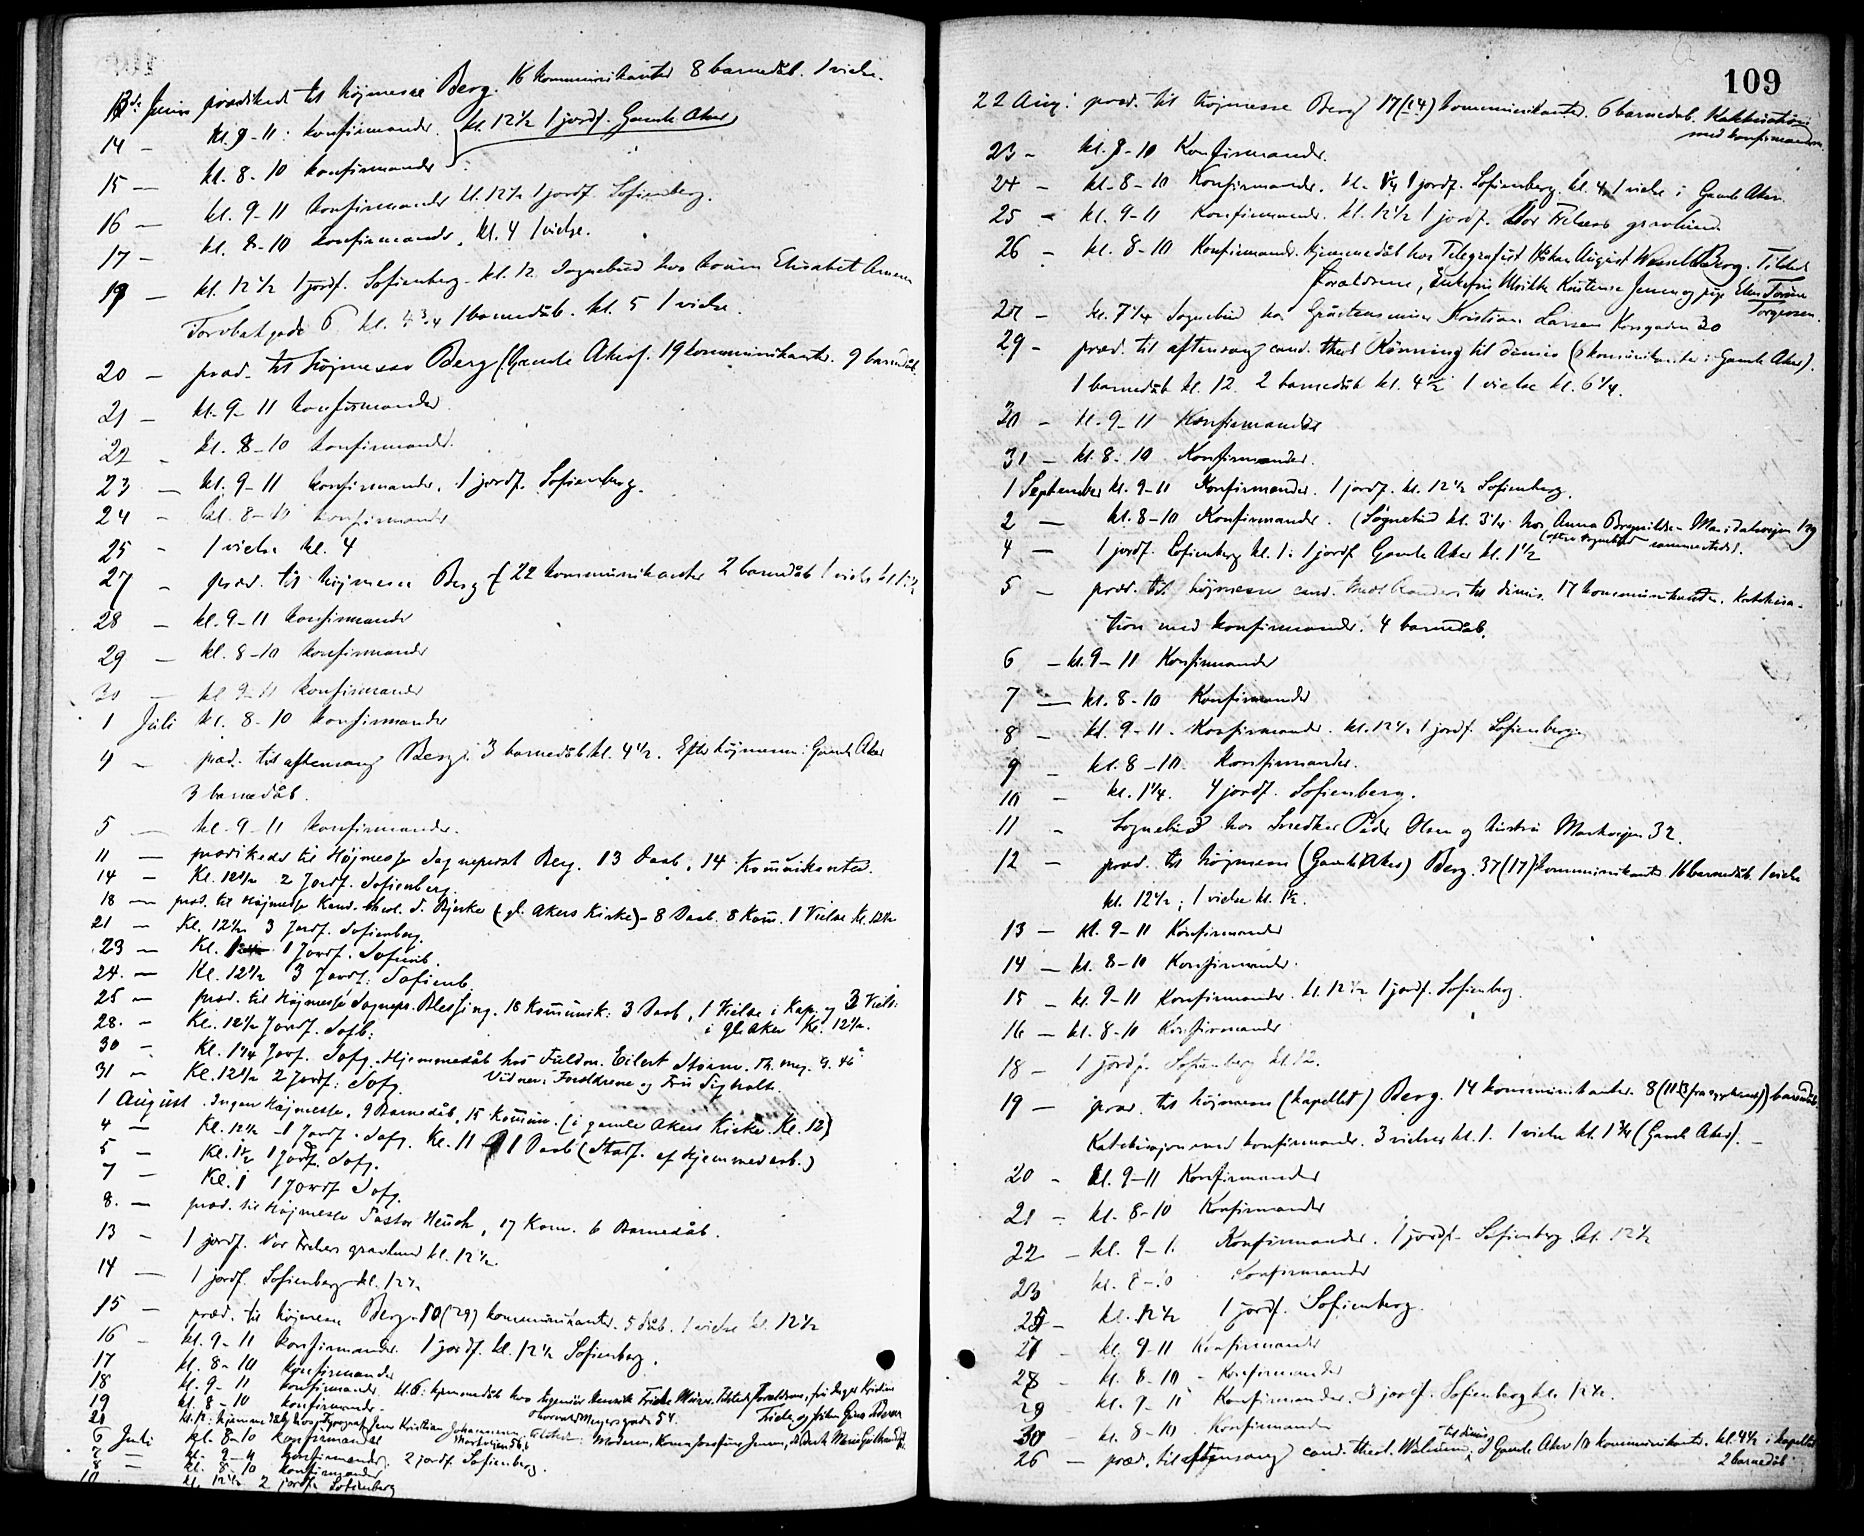 13de Juni prædiked til højmesse Berg. 16 kommunikanter 8 barnedåb. 1 vielse.
14 — kl. 9-11: konfirmander. kl. 12½ 1 jordf. Gamle Aker
15 — kl. 8-10 konfirmander
16 — kl. 9-11 konfirmander kl. 12½ 1 jordf. Sofienberg.
17 — kl. 8-10 konfirmander, kl. 4 1 vielse.
19 — kl. 12½ 1 jordf. Sofienberg. kl. 12 Sognebud hos Elisabet
Torvbakgade 6. 1 barnedåb. kl. 5 1 vielse.
20 — præd. til højmesse Berg (Gamle Aker). 19 kommunikanter. 9 barnedåb.
21 — kl. 9-11 konfirmander.
22 — kl. 8-10 konfirmander.
23 — kl. 9-11 konfirmander. 1 jordf. Sofienberg.
24 — kl. 8-10 konfirmander
25 — 1 vielse kl. 4
27 — præd. til højmesse Berg 22 kommunikanter 2 barnedåb 1 vielse
28 — kl. 9-11 konfirmander
29 — kl. 8-10 konfirmander
30 — kl 9-11 konfirmander
1 Juli kl. 8-10 konfirmander
4 — præd. til aftensang Berg. 3 barnedåb kl. 4½. Efter højmesse i Gamle Aker
3 barnedåb.
5 — kl. 9-11 konfirmander.
11 — prædikede til Højmesse Sogneprest Berg. 13 Daab, 14 Kommunikanter.
14 — Kl. 12½ 2 Jordf. Sofienberg.
18 — præd. til Højmesse Kand. theol. S. Bjerke (gl. Akers Kirke) - 8 Daab. 8 Kom. 1 Vielse Kl. 12½
21 — Kl. 12½ 3 Jordf. Sofienberg.
23 — Kl. 1 Jordf. Sofienb.
24. — Kl. 12½ 3 Jordf. Sofienb.
25 — præd. til Højmesse Sognepr. Blessing. 18 Kommunik: 3 Daab, 1 Vielse i Kap. og 3 Viels:
i gl Aker Kl. 12½.
28. — Kl. 12½ Jordf. Sofb.
30 — Kl. 1¼ Jordf. Sofg. Hjemmedåb hos Fuldm. Eilert Storm. Th. mey. g. 46
31 — Kl. 12½ 2 Jordf. Sofg. Vidner: Forældrene og Frú
1 August. Ingen Højmesse, 9 Barnedåb, 15 Kommun. (i gamle Akers Kirke. Kl. 12)
4 — Kl. 12½ 1 Jordf. Sofg. Kl. 11 1 Daab (Stadf. af Hjemmedaab.)
5 — Kl. 1½ 1 Jordf. Sofg.
7 — Kl. 1 1 Jordf Sofg.
8. — præd. til Højmesse Pastor Heuch, 17 Kom. 6 Barnedåb.
13 — 1 jordf. Vor Frelsers gravlund kl. 12½.
14 — 1 jordf. Sofienberg kl. 12½
15 — præd. til højmesse Berg 50(29) kommunikanter. 5 dåb. 1 vielse kl. 12½
16 — kl. 9-11 konfirmander. 1 jordf. kl. 12½ Sofienberg.
17 kl. 8-10 konfirmander
18 kl. 9-11 konfirmander. kl. 6: hjemmedåb hos Ingeniør Henrik Tilstede: forældrene,
19 kl. 8-10 konfirmander. Thorvald Meyersgade 54.
20 hos Typograf Jens Kristian Johannessen. Tilstede: Moderen,
6 Juli kl. 8-10 konfirmander
7 — kl. 9-11 konfirmander. 2 jordf. Sofienberg.
8 — kl. 8-10 konfirmander
10 kl. 12½ 2 jordf. Sofienberg
109
22 Aug. præd. til højmesse Berg 17(14) kommunikanter. 6 barnedåb. Katekisation
med konfirmanderne.
23 — kl. 8-10 Konfirmander.
24 — kl. 8-10 Konfirmander. 1 jordf. Sofienberg. kl. 4 1 vielse i Gamle Aker.
25 — kl. 9-11 Konfirmander. kl. 12½ 1 jordf. Vor Frelsers gravlund
26 — kl. 8-10 Konfirmander. Hjemmedåb hos Telegrafist Håkon August Wessel Berg. Tilstede
Forældrene, Enkefru Ulrikke Kristense Jensen og pige
Torgersen.
kl. 7¼ Sognebud hos Kristian Larsen Korsgaden 30
29 — præd. til aftensang cand. theol. Rønning til dimis ( kommunikanter i Gamle Aker).
1 barnedåb kl. 12. 2 barnedåb kl. 4½ 1 vielse kl. 6¼.
30 — kl. 9-11 Konfirmander
31 — kl. 8-10 Konfirmander.
1 September kl. 9-11 Konfirmander. 1 jordf. kl. 12½ Sofienberg.
2 — kl. 8-10 Konfirmander. (Sognebud hos Anna Maridalsveien
4 — 1 jordf. Sofienberg kl. 1. 1 jordf. Gamle Aker kl. 1½
5 — præd. til højmesse cand. theol. til dimis. 17 kommunikanter. Katekisa-
tion med konfirmander. 4 barnedåb.
6 — kl. 9-11 Konfirmander
7 — kl. 8-10 Konfirmander
8 — kl. 9-11. Konfirmander. kl. 12½ 1 jordf. Sofienberg
9 — kl. 8-10. Konfirmander.
10 — kl. 1¼. 4 jordf. Sofienberg.
11 — Sognebud hos Snedker Peder Olsen og hustru Markveien 32.
12 — præd. til højmesse (Gamle Aker) Berg. 37(17) kommunikanter 16 barnedåb 1 vielse
kl. 12½; 1 vielse kl. 1½.
13 — kl. 9-11 Konfirmander
14 — kl. 8-10 Konfirmander.
15 — kl. 9-11 Konfirmander. kl. 12½ 1 jordf. Sofienberg.
16 — kl. 8-10 Konfirmander
18 — 1 jordf. Sofienberg kl. 12.
19 — præd. til højmesse (kapellet) Berg. 14 kommunikanter. 8 barnedåb
Katekisasjon med konfirmander. 3 vielser kl. 1. 1 vielse kl. 1¾ (Gamle Aker). —
20 — kl. 9-11 Konfirmander
21 — kl. 8-10 Konfirmander
22 — kl. 9-1. Konfirmander. 1 jordf. Sofienberg kl. 12½
23 kl. 8-10 Konfirmander
25 — kl. 12½ 1 jordf. Sofienberg.
27 — kl. 9-11 Konfirmander
28 — kl. 8-10 - Konfirmander
29 — kl. 9-11 Konfirmander. 3 jordf. Sofienberg kl. 12½.
30 — kl. 8-10. Konfirmander
til dimis
26 — præd. til aftensang cand. theol. i Gamle Aker 10 kommunikanter. kl. 4½ i kapellet
2 barnedåb